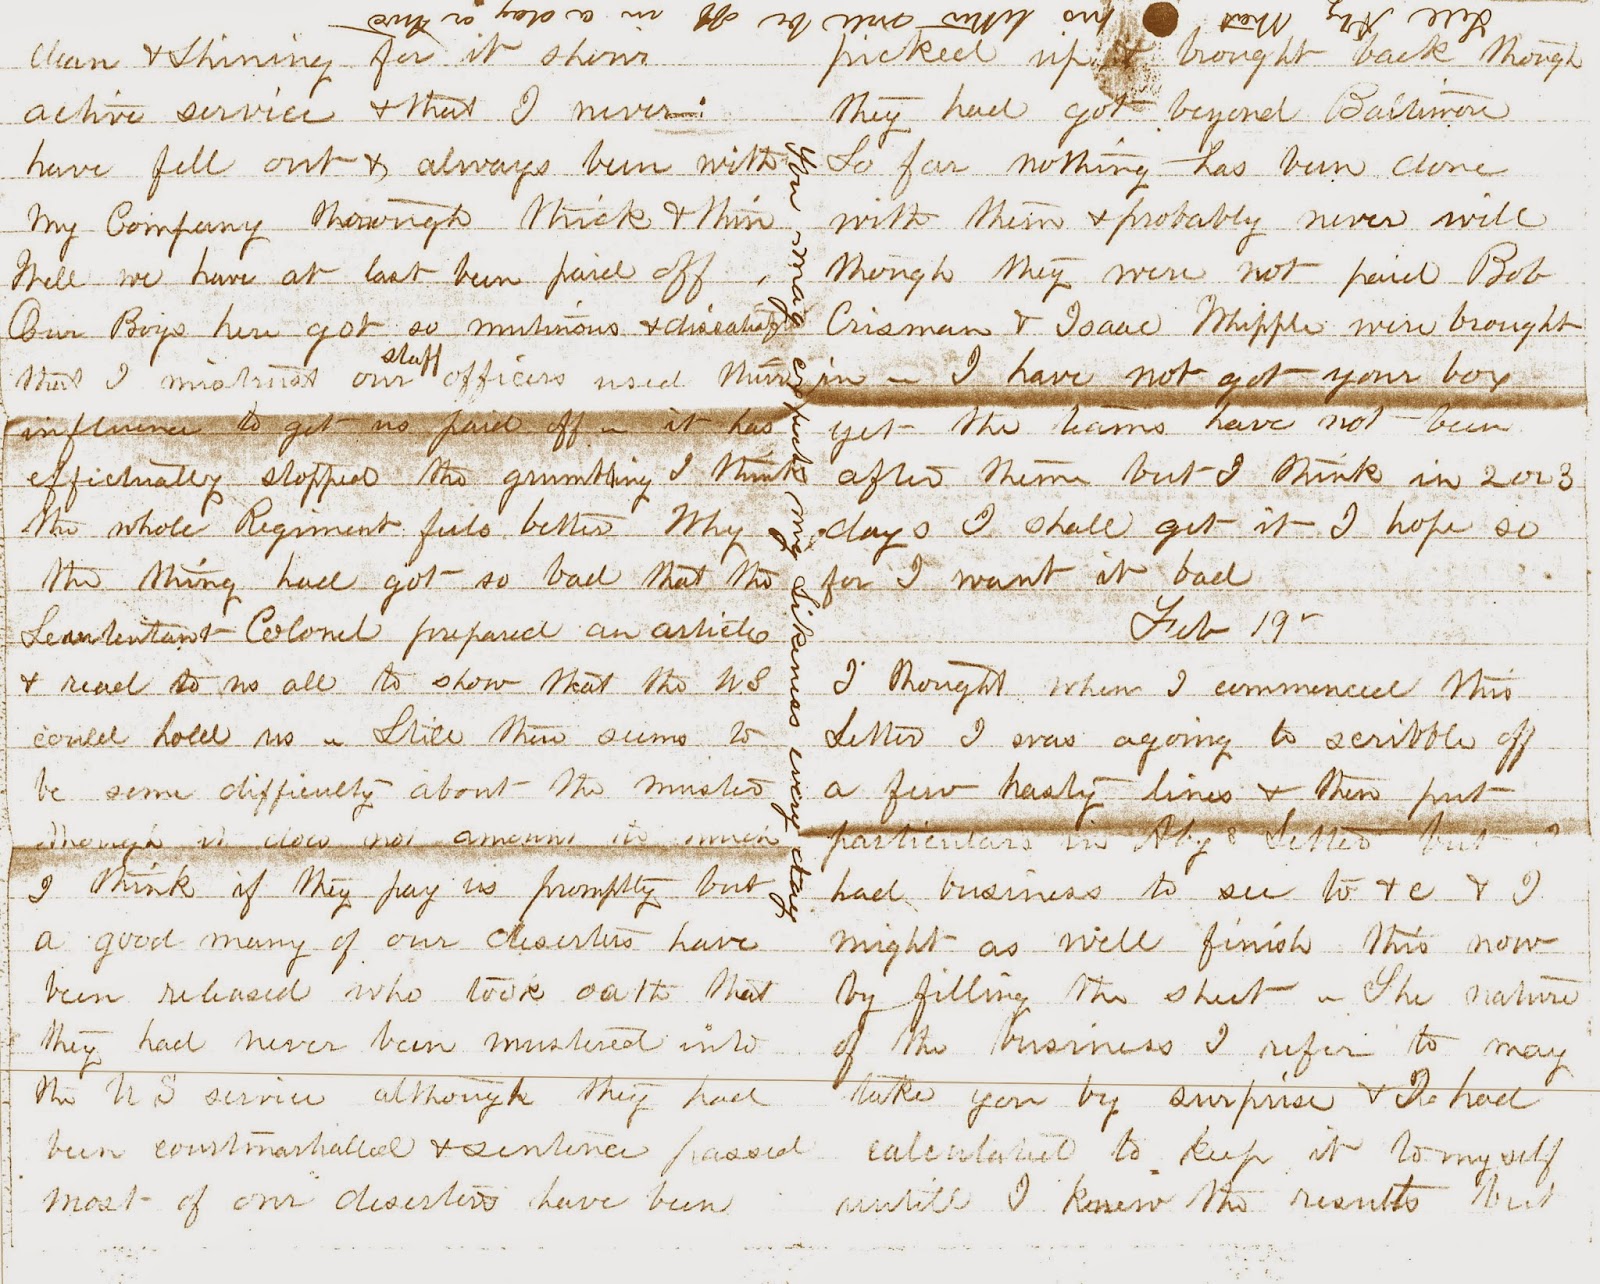 Tell Aby that his letter will be off in a day or two
clean & Shining for it shows
active service & that I never
have fell out & always been with
My Company thorough thick & thin
Well we have at last been paid off
Our Boys here got so mutinous & dissatisfied
that I mistrust our staff officers used their
influence to get us paid off ~ it has
effectually stopped the grumbling I think
the whole Regiment feels better Why
the thing had got so bad that the
Leautentant Colonel prepared an article
& read to us all to show that the US
could hold us ~ Still there seems to
be some difficulty about the muster
though it does not amount to much
I think if they pay us promptly but
a good many of our deserters have
been released who took oath that
they had never been mustered into
the U S service although they had
been courtmarshalled & sentence passed
most of our deserters have been
You may expect my Likeness every day
picked up & brought back though
they had got beyond Baltimore
So far nothing has been done
with them & probably never will
though they were not paid Bob
Crisman & Isaac Whipple were brought
in ~ I have not got your box
yet the teams have not been
after them but I think in 2 or 3
days I shall get it I hope so
for I want it bad
Feb 19r
I thought when I commenced this
Letter I was agoing to scribble off
a few hasty lines & then put
particulars in Aby s Letter but I
had business to see to &c & I
might as well finish this now
by filling the sheet ~ The nature
of the business I refer to may
take you by surprise & I had
calculated to keep it to myself
untill I knew the results but